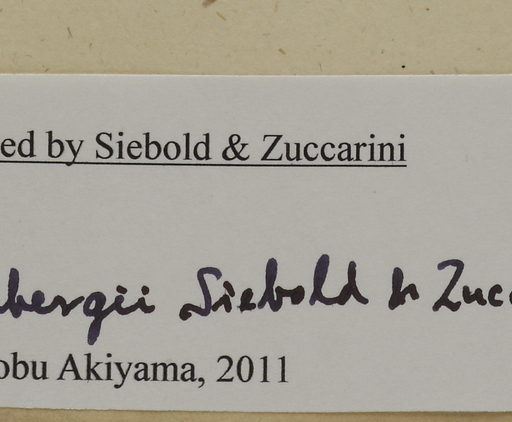 ed by Siebold & Zuccarini
bergii Siebold & Zuc
obu Akiyama, 2011